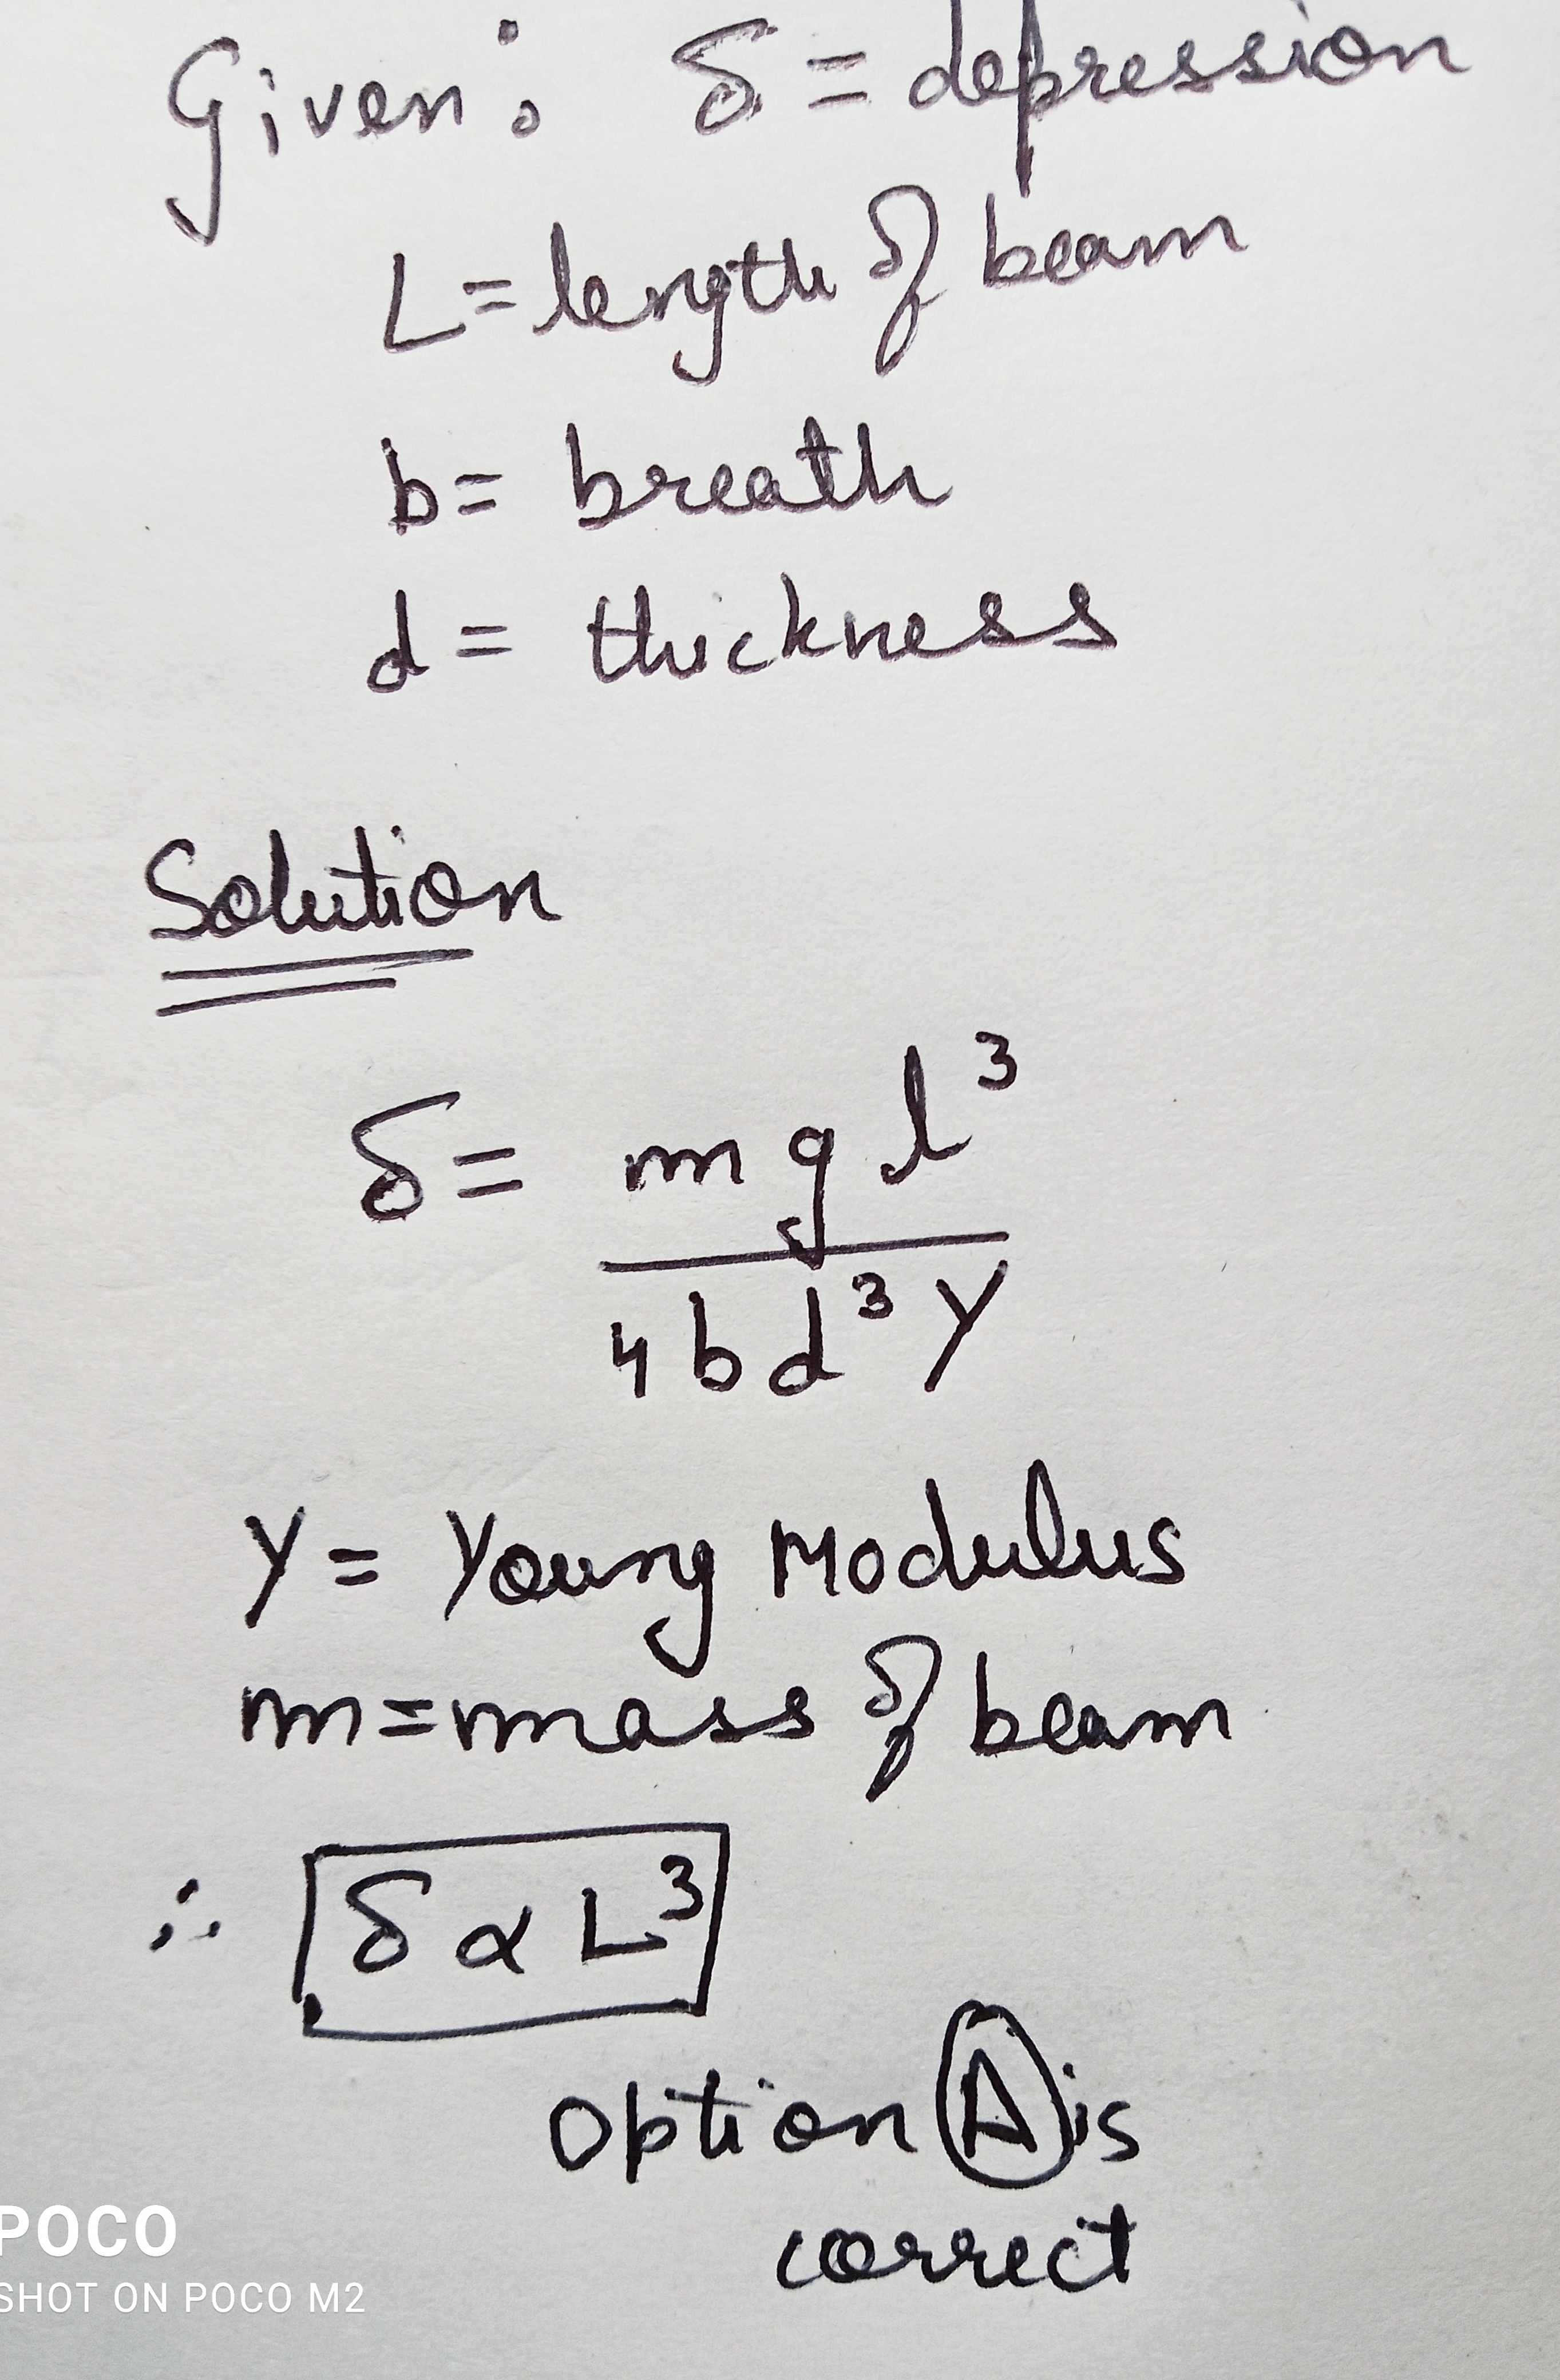 Given: δ = depression
L = length of beam
b = breath
d = thickness
Solution
δ = mgl³
4bd³Y
Y = Young Modulus
m = mass of beam
∴ δ α L³
option A is
correct
POCO
SHOT ON POCO M2